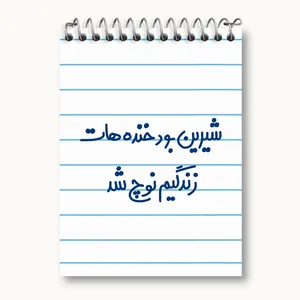 شیرین بود خنده هات
زندگیم نوچ شد